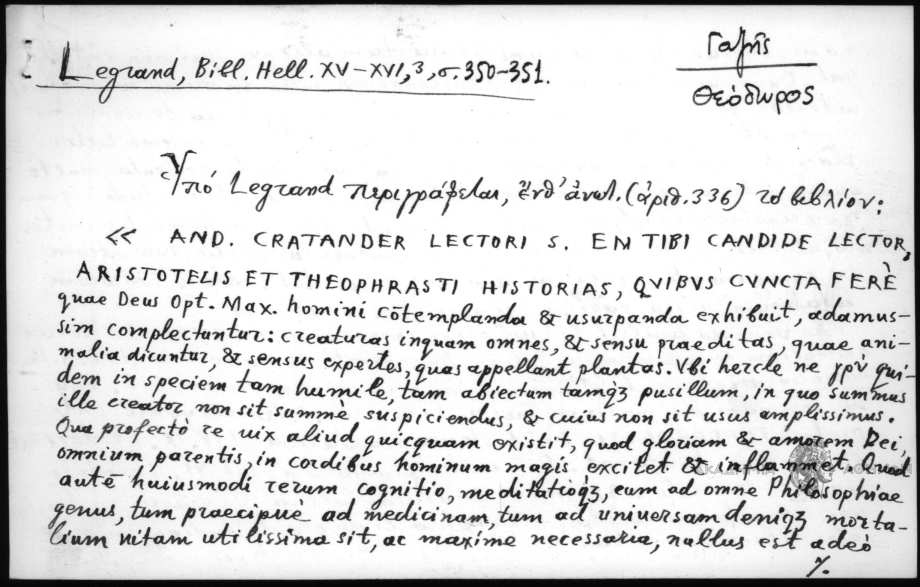 Γαζῆς
Θεόδωρος
Legrand, Bibl. Hell. XV–XVI, 3, σ. 350-351.
Ὑπό Legrand περιγράφεται, ἔνθ' ἀνωτ. (ἀριθ. 336) τὸ βιβλίον:
« AND. CRATANDER LECTORI S. EN TIBI CANDIDE LECTOR,
ARISTOTELIS ET THEOPHRASTI HISTORIAS, QVIBVS CVNCTA FERÈ
quae Deus Opt. Max. homini cōtemplanda & usurpanda exhibuit, adamus-
sim complectuntur: creaturas inquam omnes, & sensu praeditas, quae ani-
malia dicuntur, & sensus expertes, quas appellant plantas. Vbi herclè ne γρὺ qui-
dem in speciem tam humile, tam abiectum tamqȝ pusillum, in quo summus
ille creator non sit summe suspiciendus, & cuius non sit usus amplissimus.
Qua profecto re uix aliud quicquam existit, quod gloriam & amorem Dei,
omnium parentis, in cordibus hominum magis excitet & inflammet. Quod
autē huiusmodi rerum cognitio, meditatioqȝ, cum ad omne Philosophiae
genus, tum praecipue ad medicinam, tum ad uniuersam deniqȝ morta-
lium uitam utilissima sit, ac maxime necessaria, nullus est adeò
./.